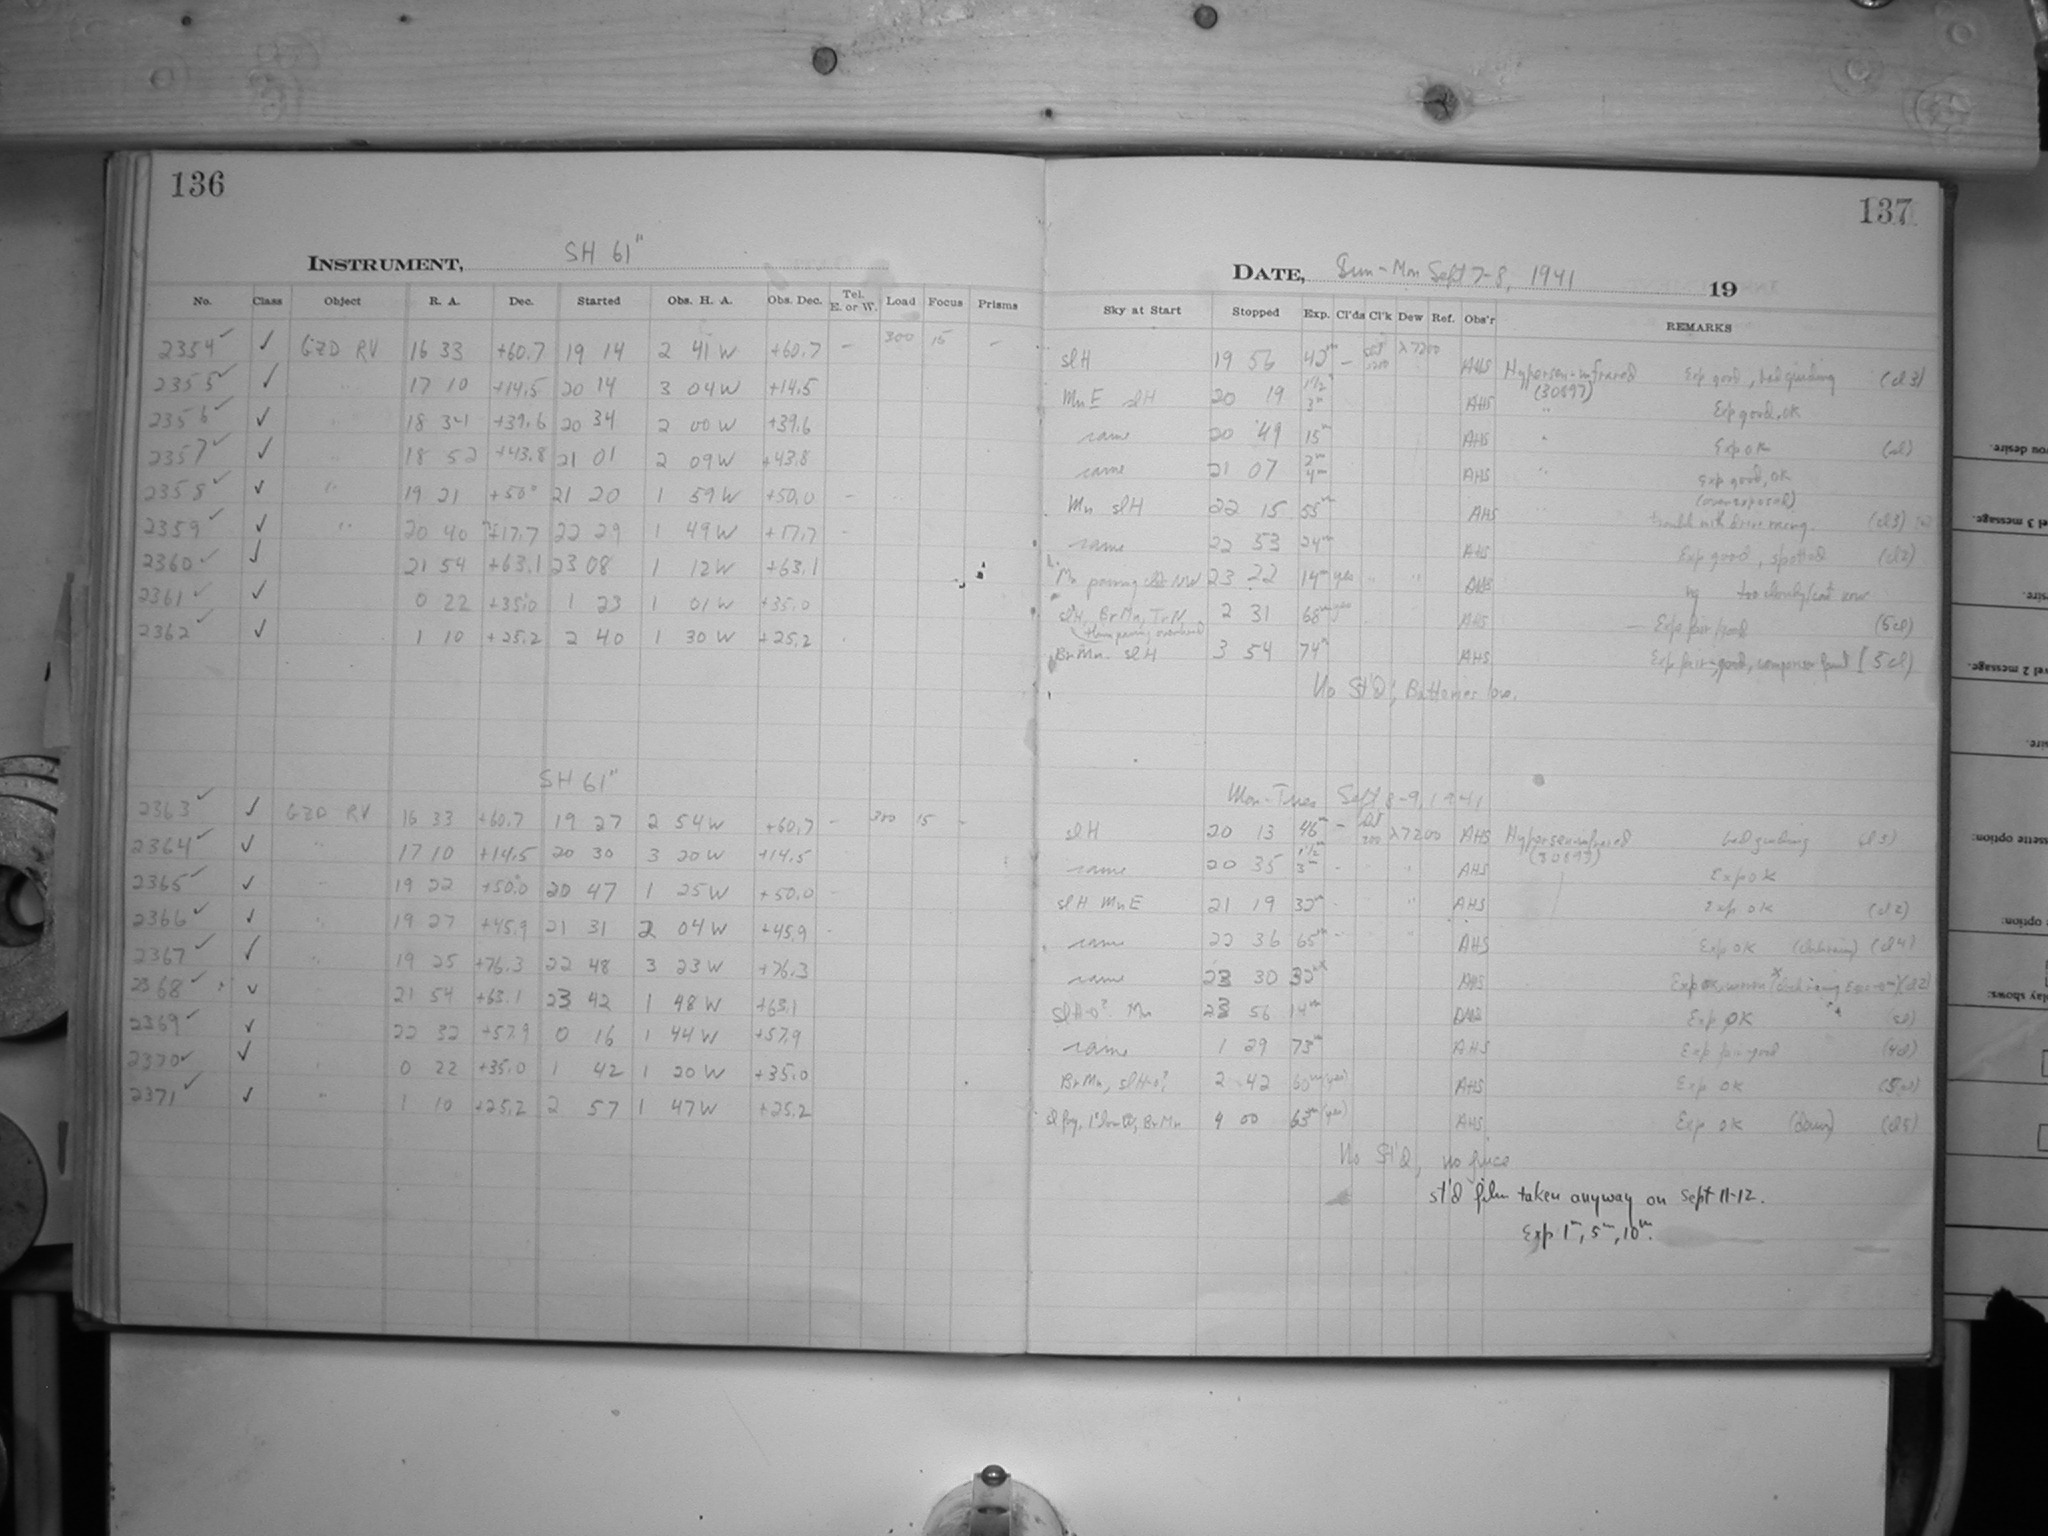 136
INSTRUMENT, SH 61"
No. Class Object R. A. Dec. Started Obs. H. A. Obs. Dec. Tel. E. or W. Load Focus Prisms
2354 ✓ GZD RV 16 33 +60.7 19 14 2 41 W +60.7 - 300 15 -
2355 ✓ " 17 10 +14.5 20 14 3 04 W +14.5
2356 ✓ " 18 34 +39.6 20 34 2 00 W +39.6
2357 ✓ " 18 52 +43.8 21 01 2 09 W +43.8
2358 ✓ " 19 21 +50° 21 20 1 59 W +50.0 -
2359 ✓ " 20 40 +17.7 22 29 1 49 W +17.7 -
2360 ✓ 21 54 +63.1 23 08 1 12 W +63.1
2361 ✓ 0 22 +35.0 1 23 1 01 W +35.0
2362 ✓ 1 10 +25.2 2 40 1 30 W +25.2
SH 61"
2363 ✓ GZD RV 16 33 +60.7 19 27 2 54 W +60.7 - 300 15 -
2364 ✓ " 17 10 +14.5 20 30 3 20 W +14.5
2365 ✓ 19 22 +50.0 20 47 1 25 W +50.0
2366 ✓ " 19 27 +45.9 21 31 2 04 W +45.9
2367 ✓ " 19 25 +76.3 22 48 3 23 W +76.3
2368 ✓ 21 54 +63.1 23 42 1 48 W +63.1
2369 ✓ 22 32 +57.9 0 16 1 44 W +57.9
2370 ✓ 0 22 +35.0 1 42 1 20 W +35.0
2371 ✓ " 1 10 +25.2 2 57 1 47 W +25.2
137
DATE, Sun-Mon Sept 7-8, 1941 19
Sky at Start Stopped Exp. Cl'ds Cl'k Dew Ref. Obs'r REMARKS
slH 19 56 42m - λ7200 AHS Hypersen-infrared (30897) Exp good, bad guiding (cl 3)
Mn E slH 20 19 1½ 3m AHS " Exp good, OK
same 20 49 15m AHS " Exp OK (cl)
same 21 07 2m 4m AHS " Exp good, OK
Mn slH 22 15 55m AHS (overexposed) trouble with drive racing. (cl3)
same 22 53 24m AHS Exp good, spotted (cl2)
Mn passing 23 22 14m yes " " AHS ng too cloudy/
slH, BrMn, 2 31 68m yes AHS Exp fair/good (5cl)
Br Mn. slH 3 54 74m AHS Exp fair-good, (5cl)
No St'd, Batteries low.
Mon-Tues Sept 8-9, 1941
slH 20 13 46m - 300 λ7200 AHS Hypersen-infrared (30893) bad guiding
same 20 35 1½m 3m AHS Exp OK
slH Mn E 21 19 32m " AHS Exp OK (cl2)
same 22 36 65m AHS Exp OK (cl4)
same 23 30 32m AHS Exp OK, (cl2)
slH-0? Mn 23 56 14m Exp OK (cl)
same 1 29 73m AHS Exp fair-good (4cl)
Br Mn, slH-0? 2 42 60m (yes) AHS Exp OK (5cl)
sl fog, Br Mn 4 00 63m (yes) AHS Exp OK (dawn) (cl5)
No St'd, no juice
St'd film taken anyway on Sept 11-12.
Exp 1m, 5m, 10m.